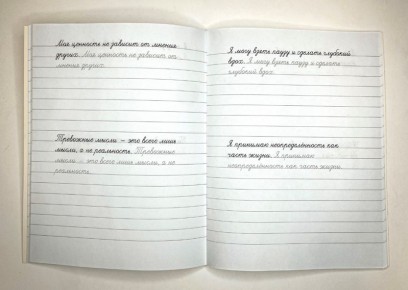 Моя ценность не зависит от мнения
других. Моя ценность не зависит от
мнения других.
Тревожные мысли – это всего лишь
мысли, а не реальность. Тревожные
мысли – это всего лишь мысли, а не
реальность.
Я могу взять паузу и сделать глубокий
вдох. Я могу взять паузу и сделать
глубокий вдох.
Я принимаю неопределённость как
часть жизни. Я принимаю
неопределённость как часть жизни.